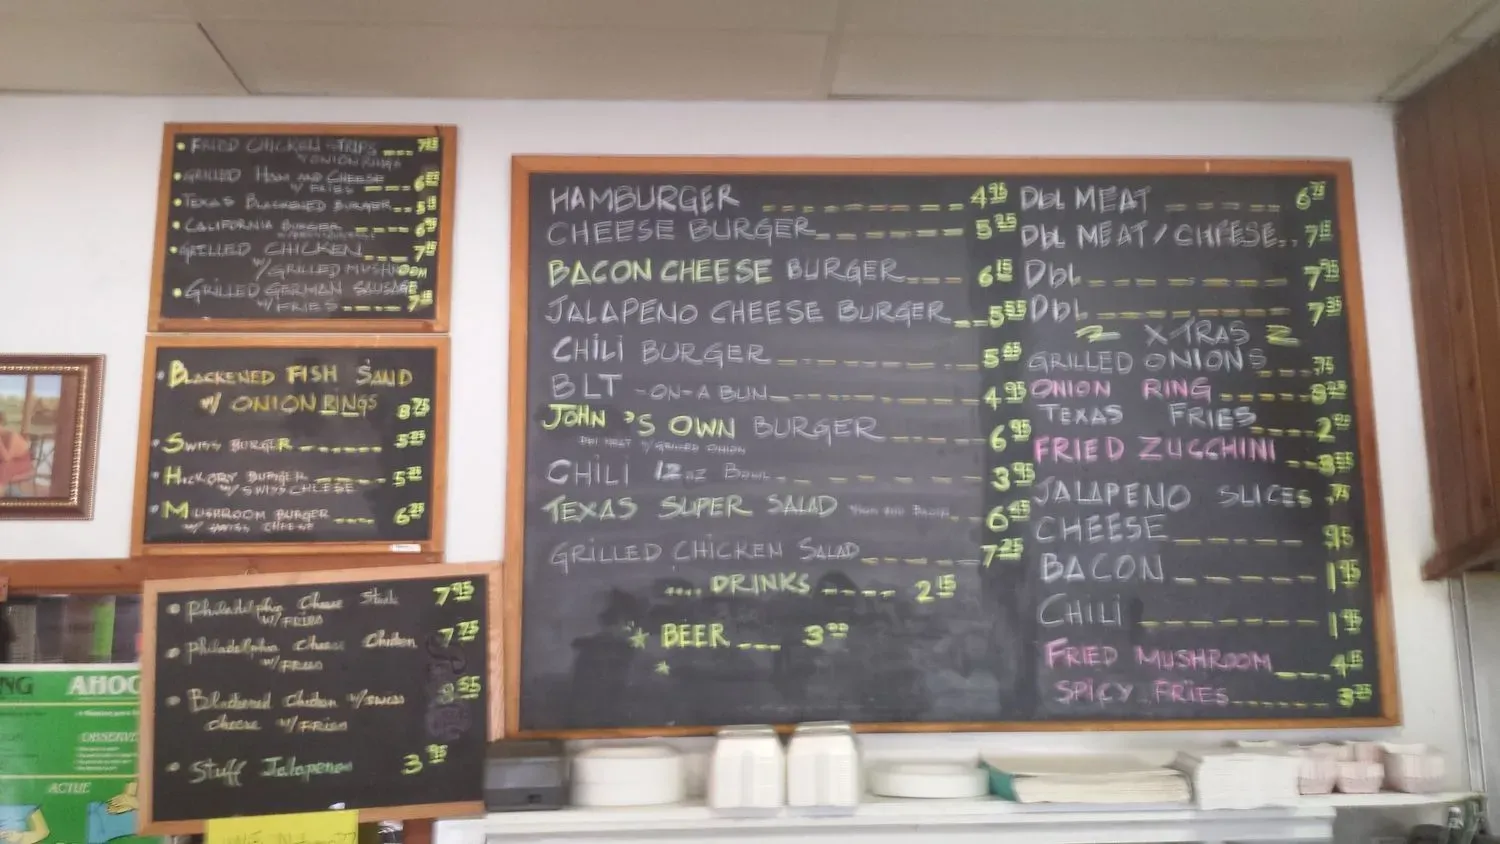 • FRIED CHICKEN STRIPS ---
W/ONION RINGS
• GRILLED HAM AND CHEESE
W/ FRIES ---- 6
• TEXAS BLACKENED BURGER -- 5
• CALIFORNIA BURGER ---- 6
• GRILLED CHICKEN ---- 7
W/GRILLED MUSHROOM
• GRILLED GERMAN SAUSAGE
W/FRIES ---- 7
• BLACKENED FISH SAND
W/ ONION RINGS 8 75
• SWISS BURGER ------ 5 25
• HICKORY BURGER ---- 5 25
W/SWISS CHEESE
• MUSHROOM BURGER ---- 6 25
W/ SWISS CHEESE
• Philadelphia Cheese Steak 7 95
W/FRIES
• Philadelphia Cheese Chicken 7 75
W/FRIES
• Blackened Chicken W/SWISS
cheese W/FRIES 55
• Stuff Jalapenos 3 95
HAMBURGER --------- 4 95
CHEESE BURGER ------- 5 25
BACON CHEESE BURGER ---- 6 15
JALAPENO CHEESE BURGER -- 5 55
CHILI BURGER --------- 5 65
BLT -ON-A BUN --------- 4 95
JOHN'S OWN BURGER ---- 6 95
DBL MEAT W/GRILLED ONION
CHILI 12 OZ BOWL -------- 3 95
TEXAS SUPER SALAD 6 45
GRILLED CHICKEN SALAD ------ 7 25
.... DRINKS ---- 2 15
* BEER --- 3 00
*
Dbl MEAT ----- 6 75
Dbl MEAT/CHEESE -- 7 15
Dbl --------- 7 95
Dbl --------- 7 35
X-TRAS
GRILLED ONIONS --- .75
ONION RING -----
TEXAS FRIES --- 2
FRIED ZUCCHINI --
JALAPENO SLICES .75
CHEESE ------ .95
BACON ------ 1 95
CHILI -------- 1 95
FRIED MUSHROOM --- 4
SPICY FRIES ------ 3 25
NG
AHOG
OBSERVE
ACTUE